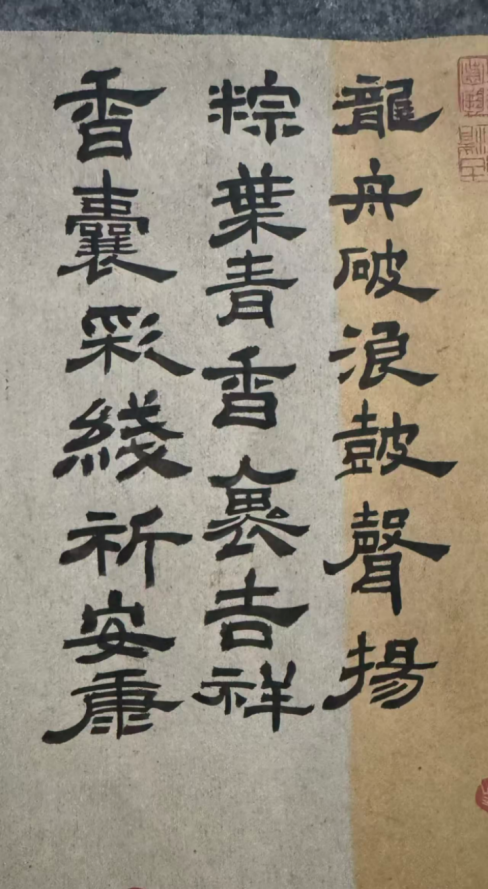 龍舟破浪鼓聲揚
粽葉青香裹吉祥
香囊彩綫祈安康